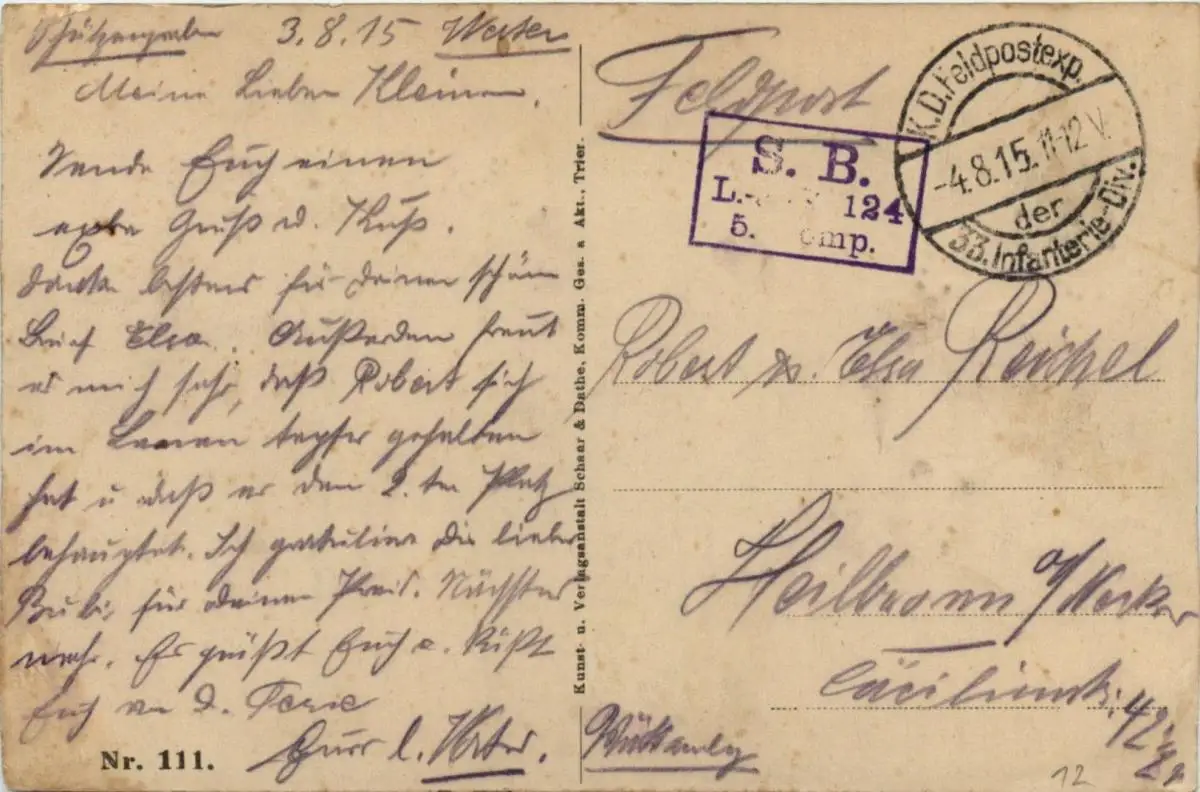 Schützengraben 3.8.15 Westen
Meine Lieben Kleinen.
Sende Euch einen
extra Gruß u. Kuß.
Danke bestens für deinen schönen
Brief Elsa. Außerdem freut
es mich sehr, daß Robert sich
im tapfer gehalten
hat u. daß er den 2. ten Platz
behauptet. Ich gratuliere Dir lieber
Bubi, für deinen Preis. Nächstens
mehr. Es grüßt Euch u. küßt
Euch
Euer l. Vater.
Nr. 111.
Kunst- u. Verlagsanstalt Schaar & Dathe, Komm. Ges. a Akt., Trier.
Feldpost
S. B.
L.- 124
5. omp.
K.D.Feldpostexp.
-4.8.15. 11-12 V.
der
33. Infanterie-Div.
Robert u. Elsa Reichel
Heilbronn a/ Neckar
Cäcilienstr. 42
Württemberg
12